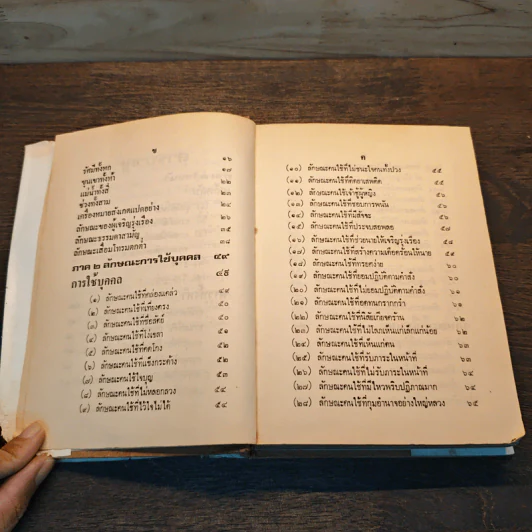 ข
รัศมีทั้งหก ๑๖
ขุนเขาทั้งห้า ๑๗
แม่น้ำทั้งสี่ ๒๒
ช่วงทั้งสาม ๒๓
เครื่องหมายสังเกตแปดอย่าง ๒๔
ลักษณะของผู้เจริญรุ่งเรือง ๒๖
ลักษณะธรรมดาสามัญ ๓๕
ลักษณะเสื่อมโทรมตกต่ำ ๓๘
ภาค ๒ ลักษณะการใช้บุคคล ๔๙
การใช้บุคคล ๔๙
(๑) ลักษณะคนใช้ที่คล่องแคล่ว ๔๙
(๒) ลักษณะคนใช้ที่เที่ยงตรง ๕๐
(๓) ลักษณะคนใช้ที่ซื่อสัตย์ ๕๐
(๔) ลักษณะคนใช้ที่โง่เขลา ๕๑
(๕) ลักษณะคนใช้ที่คดโกง ๕๒
(๖) ลักษณะคนใช้ที่แข็งกระด้าง ๕๒
(๗) ลักษณะคนใช้ใจบุญ ๕๓
(๘) ลักษณะคนใช้ที่ไม่หลอกลวง ๕๔
(๙) ลักษณะคนใช้ที่ไว้ใจไม่ได้ ๕๔
ค
(๑๐) ลักษณะคนใช้ที่ไม่ชนะใจคนทั้งปวง ๕๕
(๑๑) ลักษณะคนใช้ที่ติดยาเสพติด ๕๕
(๑๒) ลักษณะคนใช้เจ้าชู้ผู้หญิง ๕๖
(๑๓) ลักษณะคนใช้ที่ชอบการพนัน ๕๖
(๑๔) ลักษณะคนใช้ที่มีสัจจะ ๕๖
(๑๕) ลักษณะคนใช้ที่ประจบสอพลอ ๕๗
(๑๖) ลักษณะคนใช้ที่ช่วยนายให้เจริญรุ่งเรือง ๕๘
(๑๗) ลักษณะคนใช้ที่สร้างความเดือดร้อนให้นาย ๕๙
(๑๘) ลักษณะคนใช้ที่ทรยศง่าย ๖๐
(๑๙) ลักษณะคนใช้ที่ยอมปฏิบัติตามคำสั่ง ๖๐
(๒๐) ลักษณะคนใช้ที่ไม่ยอมปฏิบัติตามคำสั่ง ๖๑
(๒๑) ลักษณะคนใช้ที่อดทนตรากตรำ ๖๑
(๒๒) ลักษณะคนใช้ที่นิสัยเกียจคร้าน ๖๒
(๒๓) ลักษณะคนใช้ที่ไม่โลภเห็นแก่เล็กแก่น้อย ๖๒
(๒๔) ลักษณะคนใช้ที่เห็นแก่ตน ๖๓
(๒๕) ลักษณะคนใช้ที่รับภาระในหน้าที่ ๖๓
(๒๖) ลักษณะคนใช้ที่ไม่รับภาระในหน้าที่ ๖๔
(๒๗) ลักษณะคนใช้ที่มีไหวพริบปฏิภาณมาก ๖๔
(๒๘) ลักษณะคนใช้ที่กุมอำนาจอย่างใหญ่หลวง ๖๕